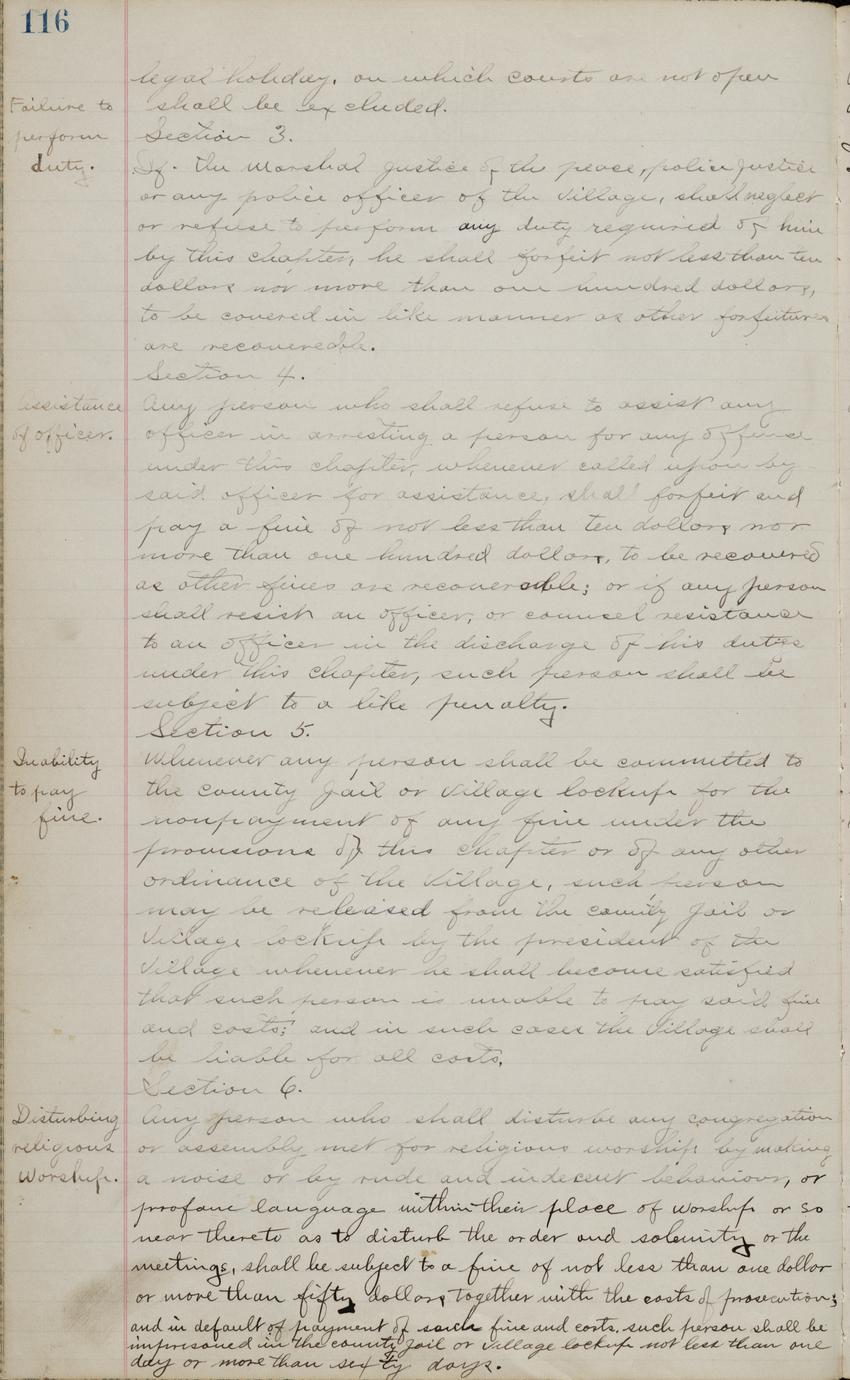 116
legal holiday, on which courts are not open
shall be excluded.
Failure to
perform
duty.
Section 3.
If the Marshal Justice of the peace, police Justice
or any police officer of the Village, shall neglect
or refuse to perform any duty required of him
by this chapter, he shall forfeit not less than ten
dollars nor more than one hundred dollars,
to be covered in like manner as other forfeitures
are recoverable.
Section 4.
Assistance
of officer.
Any person who shall refuse to assist any
officer in arresting a person for any offense
under this chapter, whenever called upon by
said officer for assistance, shall forfeit and
pay a fine of not less than ten dollars nor
more than one hundred dollars, to be recovered
as other fines are recoverable; or if any person
shall resist an officer, or counsel resistance
to an officer in the discharge of his duties
under this chapter, such person shall be
subject to a like penalty.
Section 5.
Inability
to pay
fine.
Whenever any person shall be committed to
the county Jail or Village lockup for the
nonpayment of any fine under the
provisions of this chapter or of any other
ordinance of the Village, such person
may be released from the county Jail or
Village lockup by the president of the
Village whenever he shall become satisfied
that such person is unable to pay said fine
and costs; and in such cases the Village shall
be liable for all costs.
Section 6.
Disturbing
religious
Worship.
Any person who shall disturbe any congregation
or assembly met for religious worship by making
a noise or by rude and indecent behaviour, or
profane language within their place of worship or so
near thereto as to disturb the order and solemnity or the
meetings, shall be subject to a fine of not less than one dollar
or more than fifty dollars, together with the costs of prosecution;
and in default of payment of such fine and costs, such person shall be
imprisoned in the county Jail or Village lockup not less than one
day or more than sixty days.